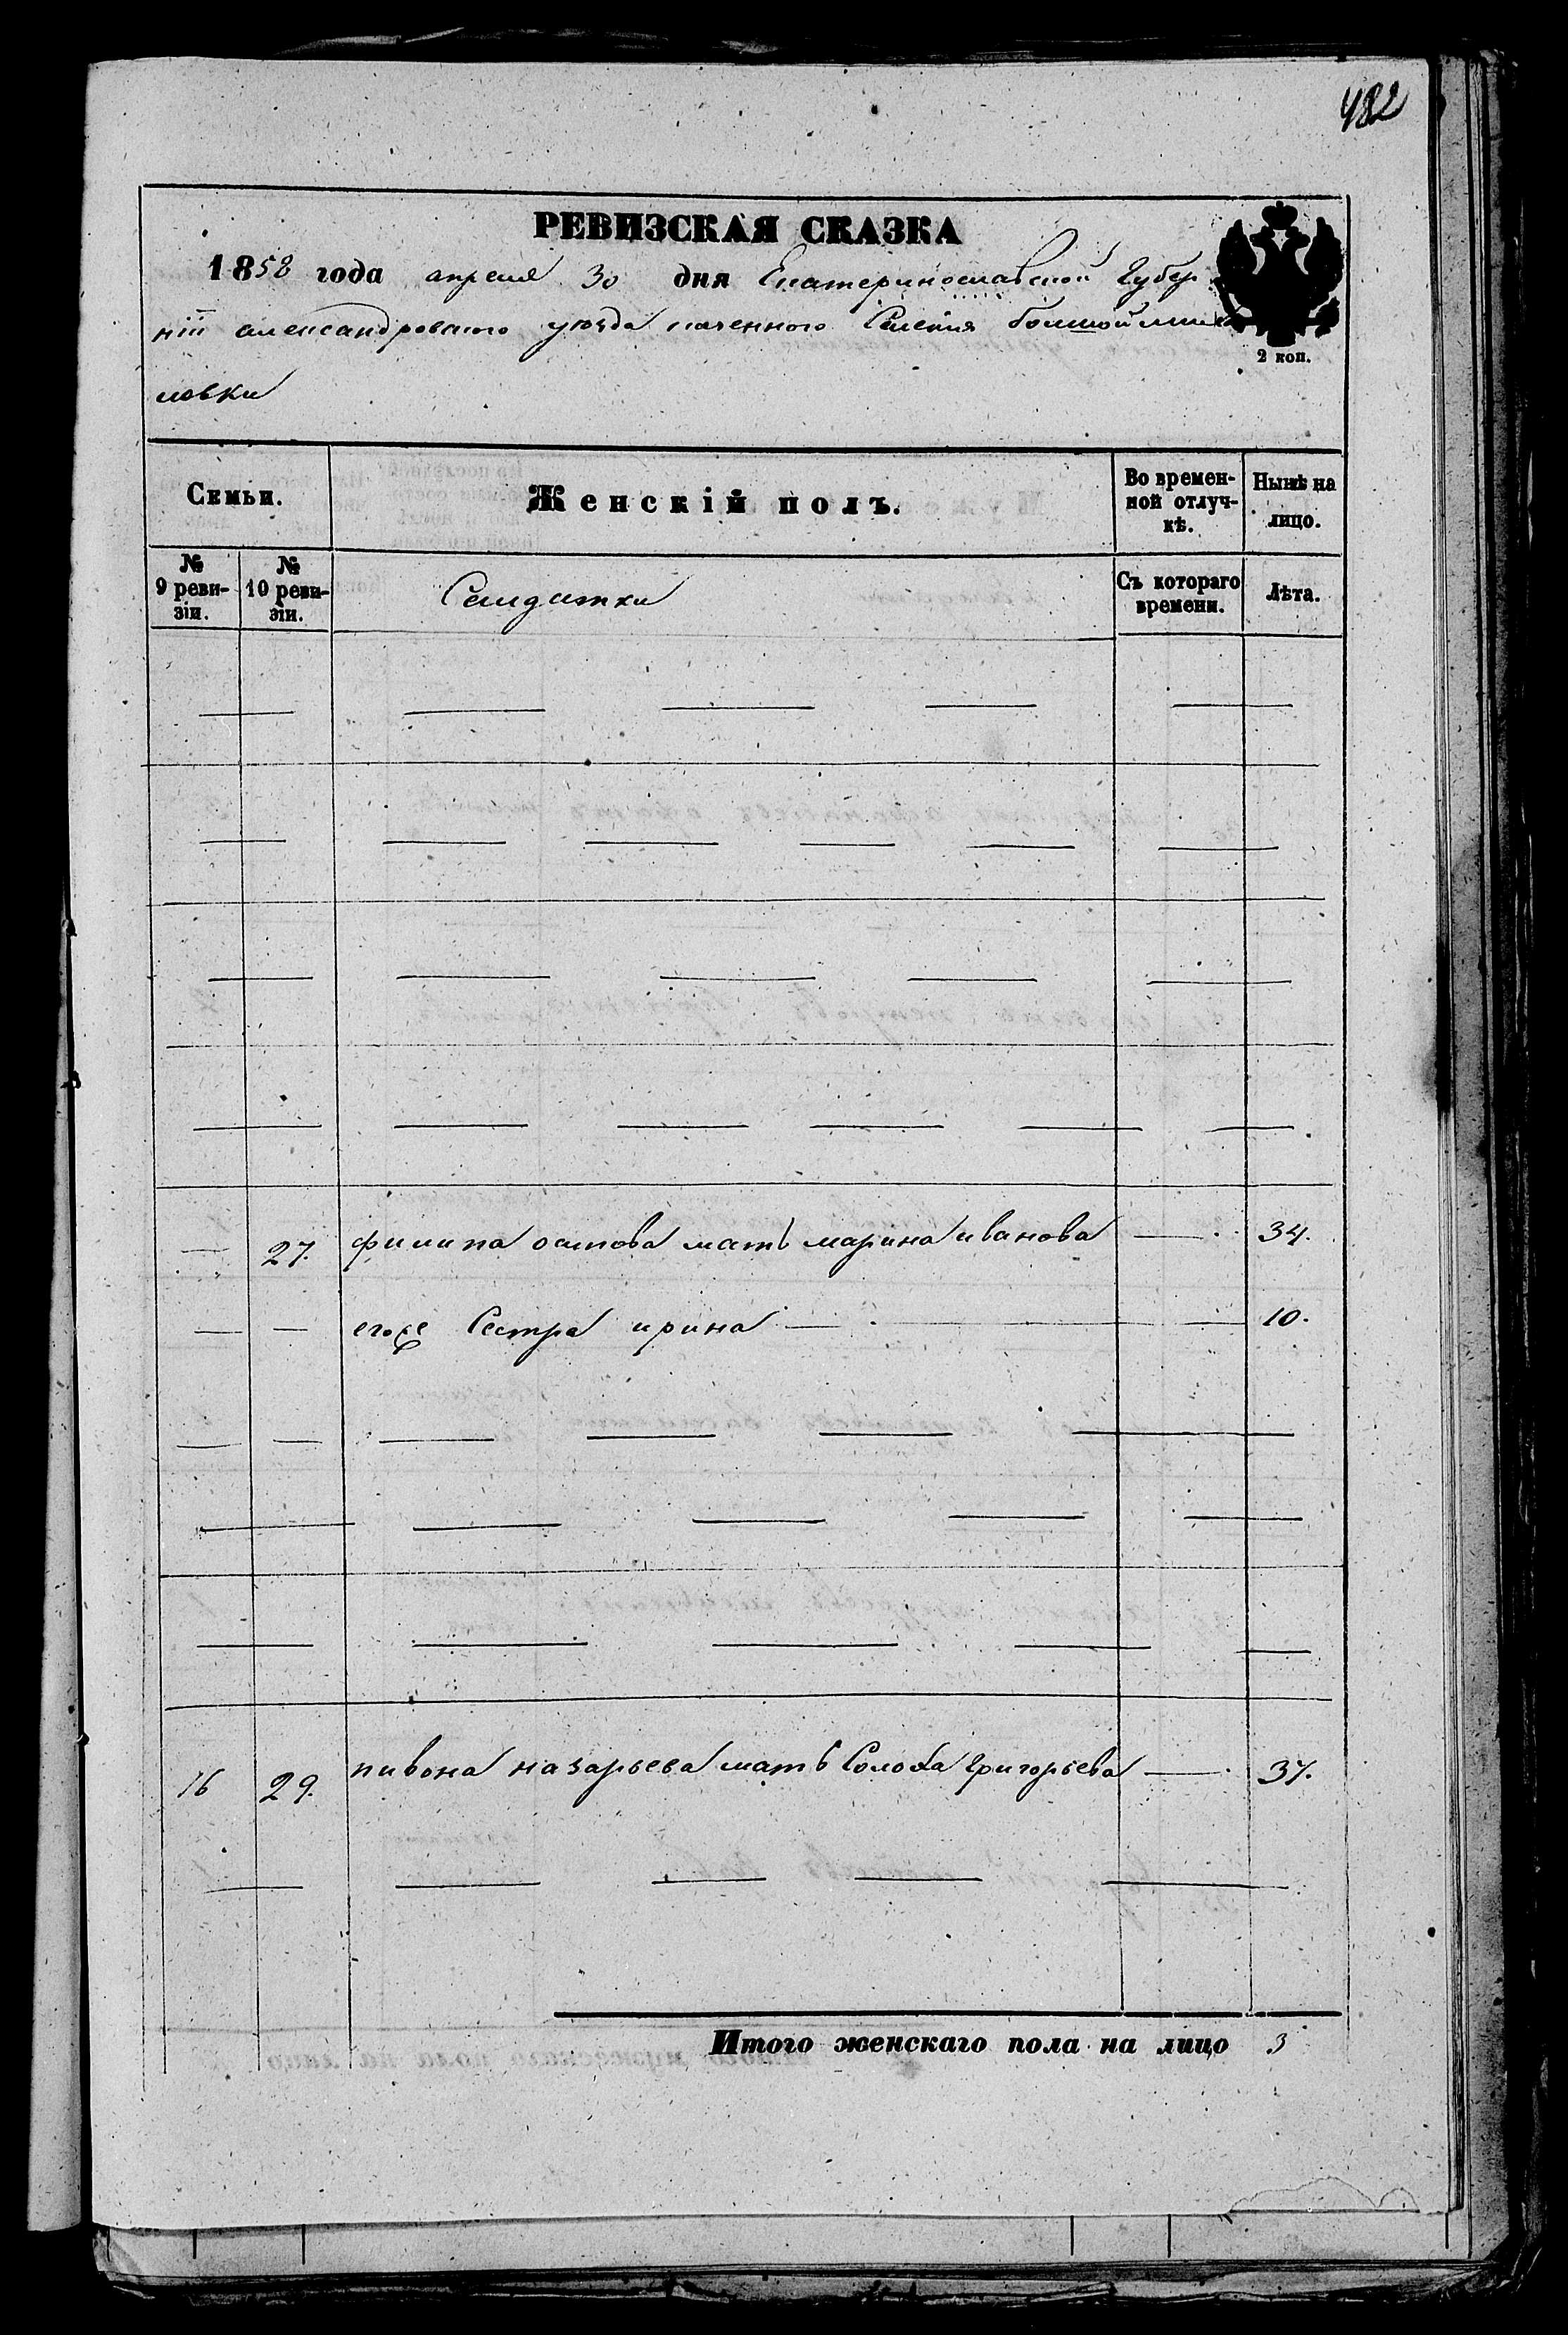 482
РЕВИЗСКАЯ СКАЗКА
1858 года апреля 30 дня Екатеринославской Губер
нiи александровского уезда казенного Селения болшой михай
ловки
2 коп.
Семьи.
Женскiй полъ.
Во времен-
ной отлуч-
кѣ.
Нынѣ на
лицо.
№
9 реви-
зiи.
№
10 реви-
зiи.
Салдатки
Съ котораго
времени.
Лѣта.
27. филипа осипова мать марина иванова 34.
егоже Сестра ирина 10.
16 29. пивона назарьева мать Солоха григорьева 37.
Итого женскаго пола на лицо 3